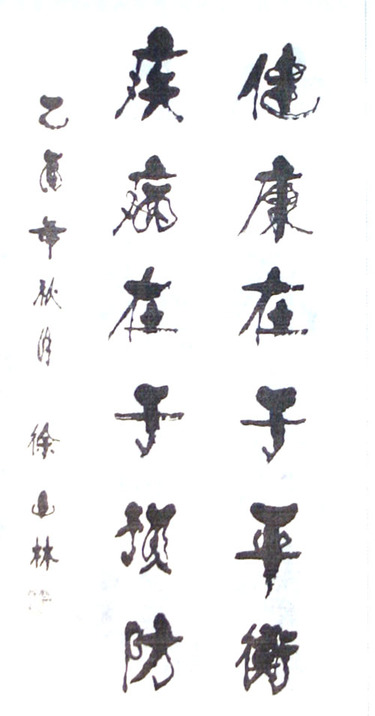 健康在于平衡
疾病在于预防
乙酉年秋月 徐山林